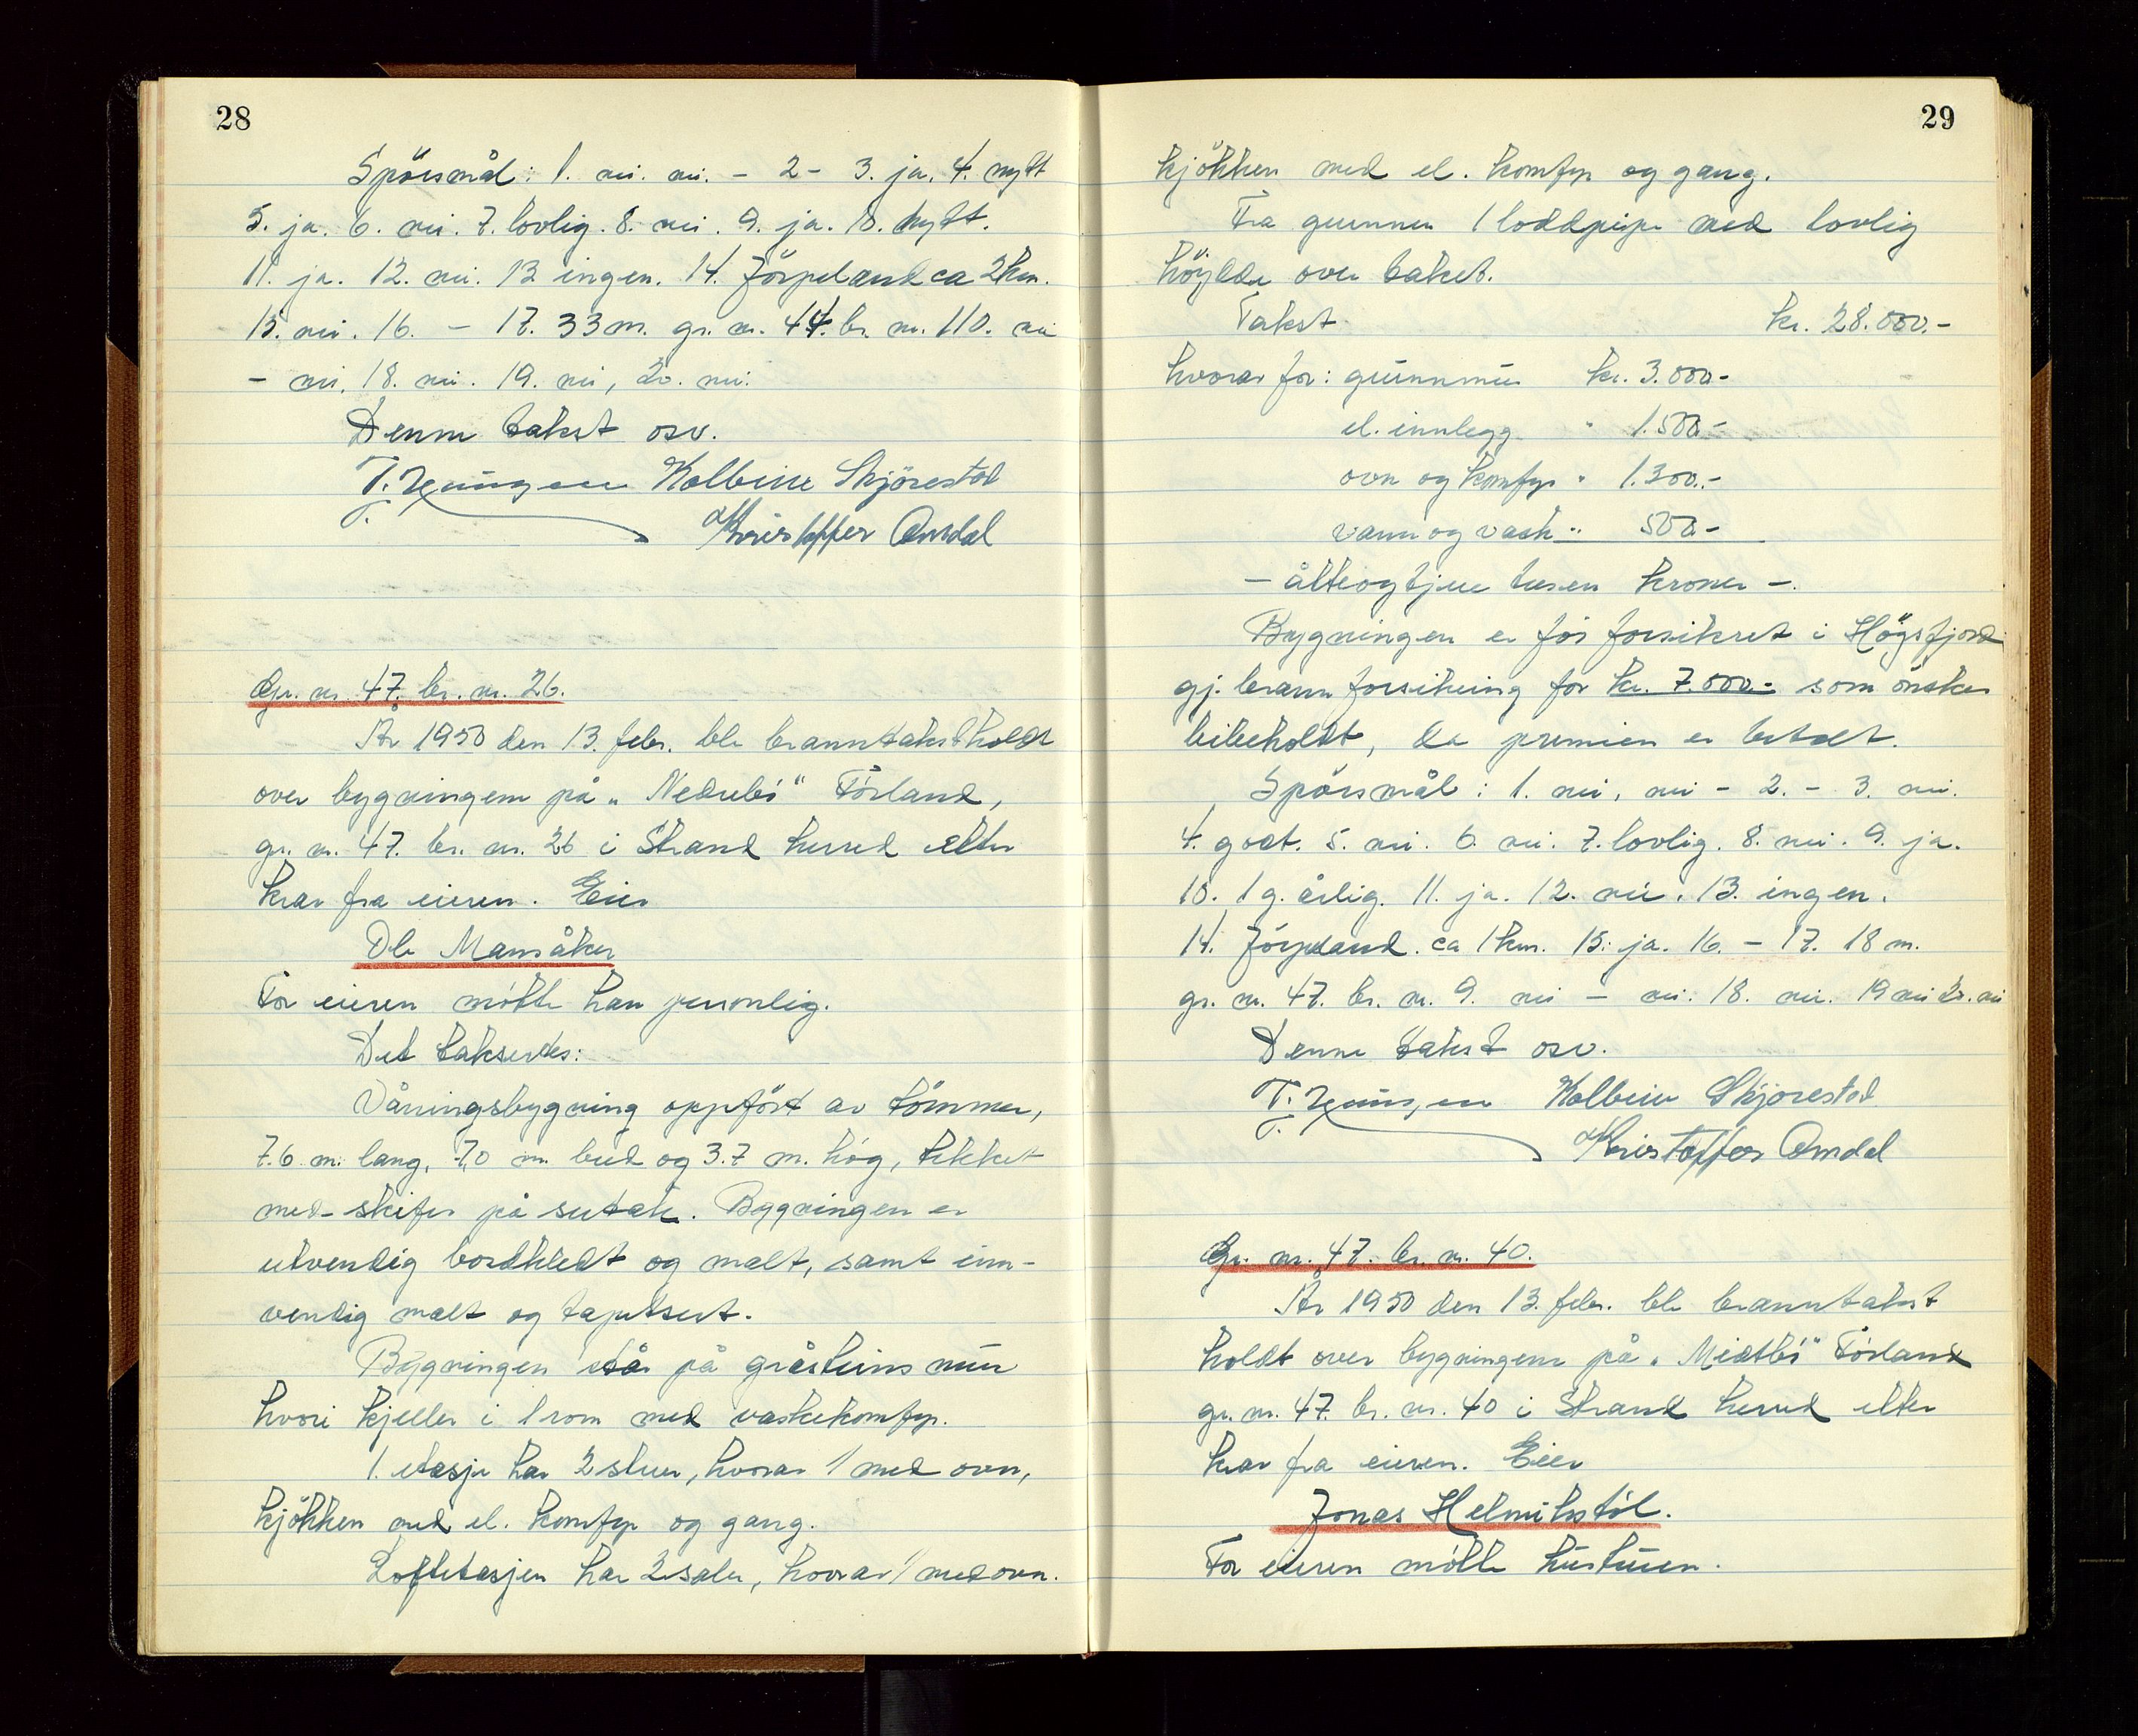 28
Spörsmål: 1. nei. nei. - 2 - 3. ja. 4. nytt
5. ja. 6. nei. 7. lovlig. 8. nei. 9. ja. 10. nytt.
11. ja. 12. nei. 13 ingen. 14. Jörpeland ca 2 km.
15. nei. 16. - 17. 33 m. gr. nr. 44. br. nr. 110. nei
- nei. 18. nei. 19. nei, 20. nei.
Denne takst osv.
Kolbein Skjörestad
Kristoffer Omdal
Gr. nr. 47. br. nr. 26.
År 1950 den 13. febr. ble branntakst holdt
over bygningene på „Nedrebö" Förland,
gr. nr. 47. br. nr. 26 i Strand herred etter
krav fra eieren. Eier
Ole Mansåker
For eieren møtte han personlig.
Det takseredes:
Våningsbygning oppfört av tömmer,
7.6 m. lang, 7,0 m. bred og 3.7 m. høg, tekket
med skifer på sutak. Bygningen er
utvendig bordkledt og malt, samt inn-
vendig malt og tapetsert.
Bygningen står på gråsteins mur
hvori kjeller i 1 rom med vaskekomfyr.
1. etasje har 2 stuer, hvorav 1 med ovn,
kjökken med el. komfyr og gang.
Loftetasjen har 2 saler, hvorav 1 med ovn.
29
kjökken med el. komfyr og gang.
Fra grunnen 1 loddpipe med lovlig
höyde over taket.
Takst kr. 28.000.-
hvorav for: grunnmur kr. 3.000.-
el. innlegg " 1.500.-
ovn og komfyr " 1.300.-
vann og vask " 500.-
- åtteogtjue tusen kroner -.
Bygningen er för forsikret i Högsfjord
gj. brannforsikring for kr. 7.000.- som ønskes
bibeholdt, da premien er betalt.
Spörsmål: 1. nei, nei - 2. - 3. nei.
4. godt. 5. nei. 6. nei. 7. lovlig. 8. nei. 9. ja.
10. 1 g. årlig. 11. ja. 12. nei. 13. ingen.
14. Jörpeland. ca 1 km. 15. ja. 16. - 17. 18 m.
gr. nr. 47. br. nr. 9. nei - nei. 18. nei. 19 nei 20. nei
Denne takst osv.
Kolbein Skjörestad
Kristoffer Omdal
Gr. nr. 47. br. nr. 40.
År 1950 den 13. febr. ble branntakst
holdt over bygningene på „Midtbö" Förland
gr. nr. 47. br. nr. 40 i Strand herred etter
krav fra eieren. Eier
Jonas Helmikstöl.
For eieren møtte hustruen.